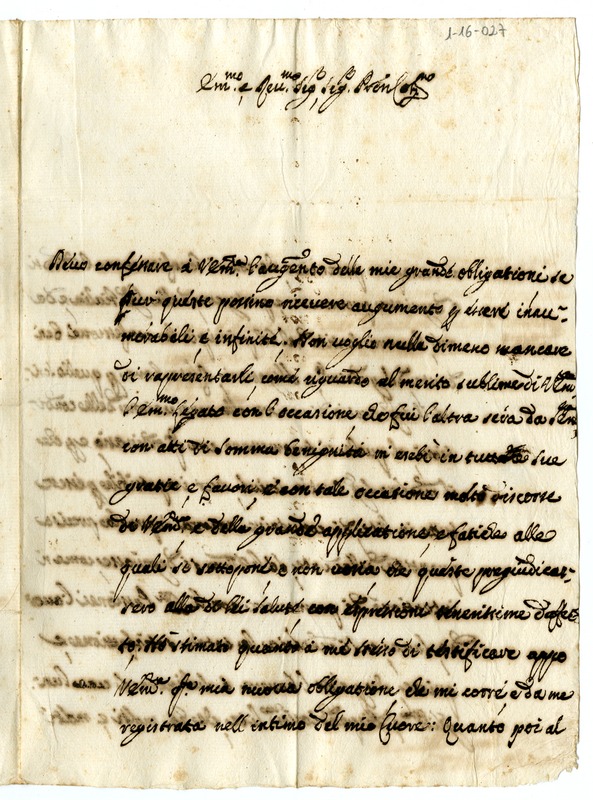 1-16-027
Em.mo e Reu.mo Sig.r Sig.r Pron Col.mo
Deuo confessare à V. Em.a l'augm.to delle mie grandi obligationi se
può queste possino riceuere augumento p essere innu-
morabili e infinite. Non voglio nulla dimeno mancare
di rapresentarle come riguardo al merito sublime di V. Em.a
l'Em.mo Legato con l'occasione che fui l'altra sera da S. Em.a
con atti di somma benignità m'esebì in tutto le sue
gratie e fauori e con tale occasione molto discorse
di V. Em.a e della grande applicatione e fatiche alle
quali si sottopone e non uoria che queste pregiudicas-
sero alla di lei salute con espressioni tenerissime d'affet-
to. Hò stimato quanto à me stesso di certificare appo
V. Em.a mia nuoua obligatione che mi corre e da me
registrata nell'intimo del mio Cuore: Quanto poi al